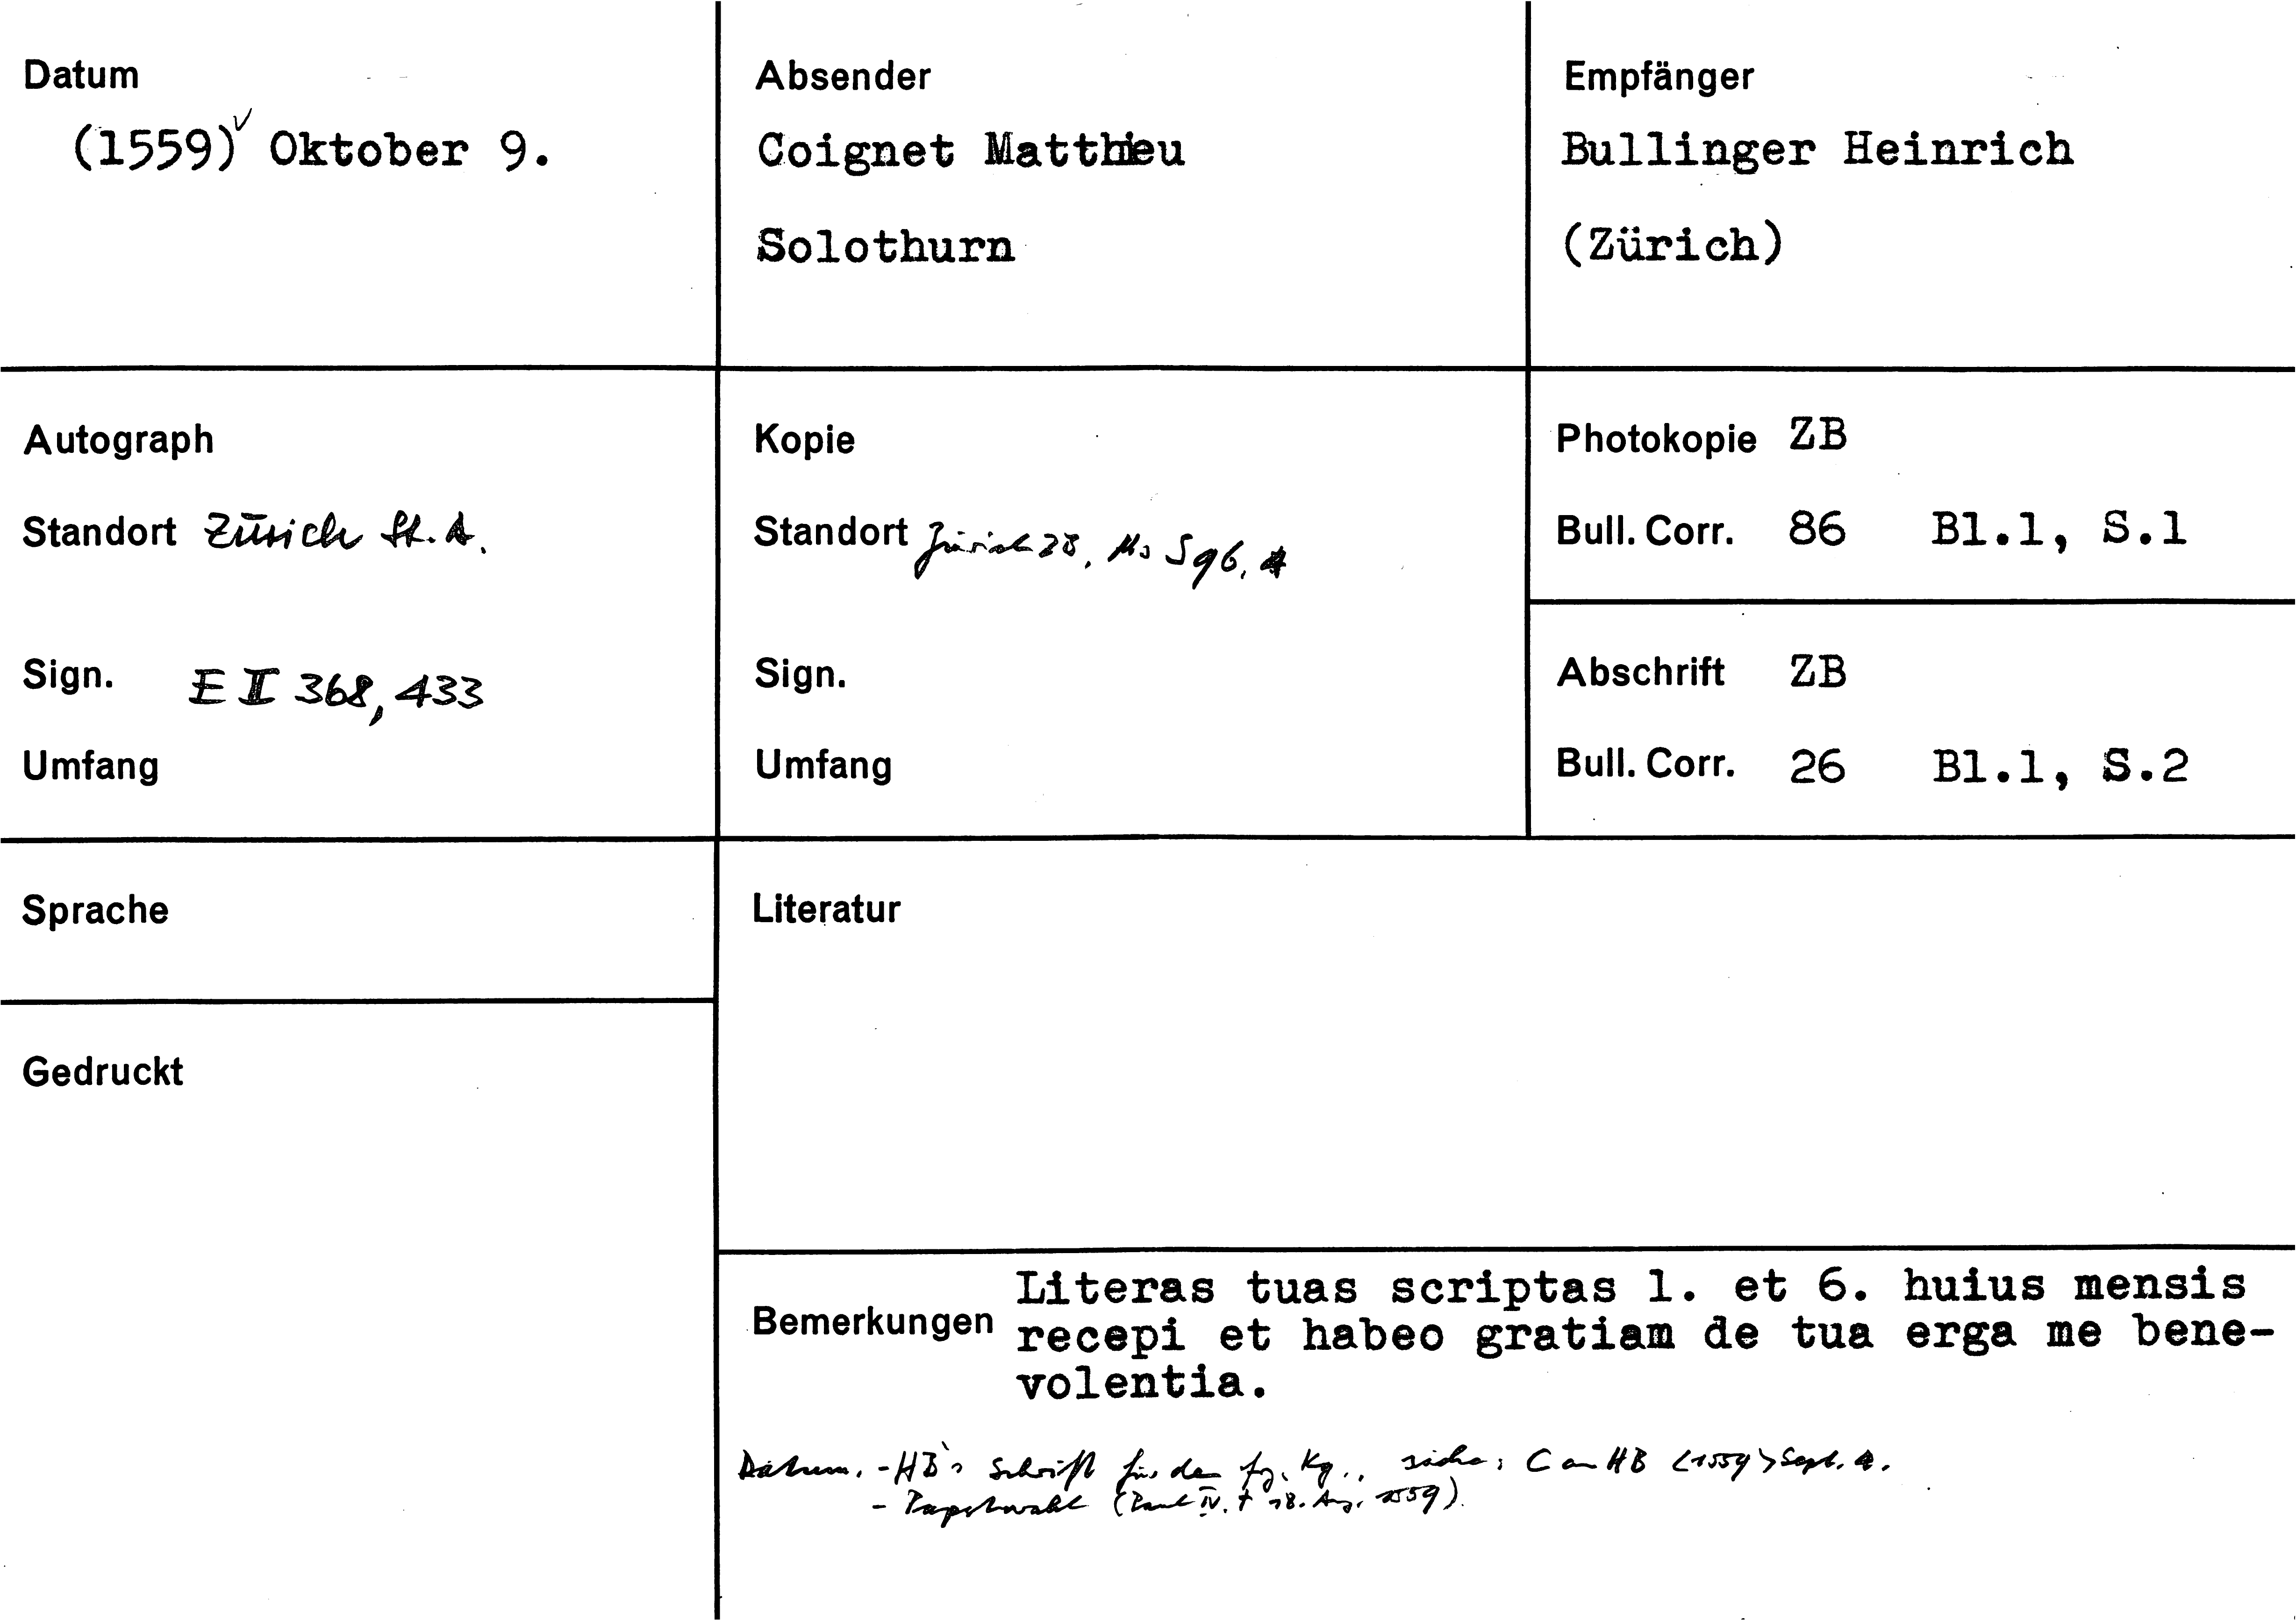 Datum
(1559)✓ Oktober 9.
Absender
Coignet Matthieu
Solothurn
Empfänger
Bullinger Heinrich
(Zürich)
Autograph
Standort Zürich St.A.
Sign. E II 368, 433
Umfang
Kopie
Standort Zürich ZB, Ms S 96, 4
Sign.
Umfang
Photokopie ZB
Bull. Corr. 86 Bl.1, S.1
Abschrift ZB
Bull. Corr. 26 Bl.1, S.2
Sprache
Gedruckt
Literatur
Bemerkungen
Literas tuas scriptas 1. et 6. huius mensis
recepi et habeo gratiam de tua erga me bene-
volentia.
Datum. - HB's Schrift für den fz. Kg., siehe: C an HB <1559> Sept. 4.
- Papstwahl (Paul IV. † 18. Aug. 1559).